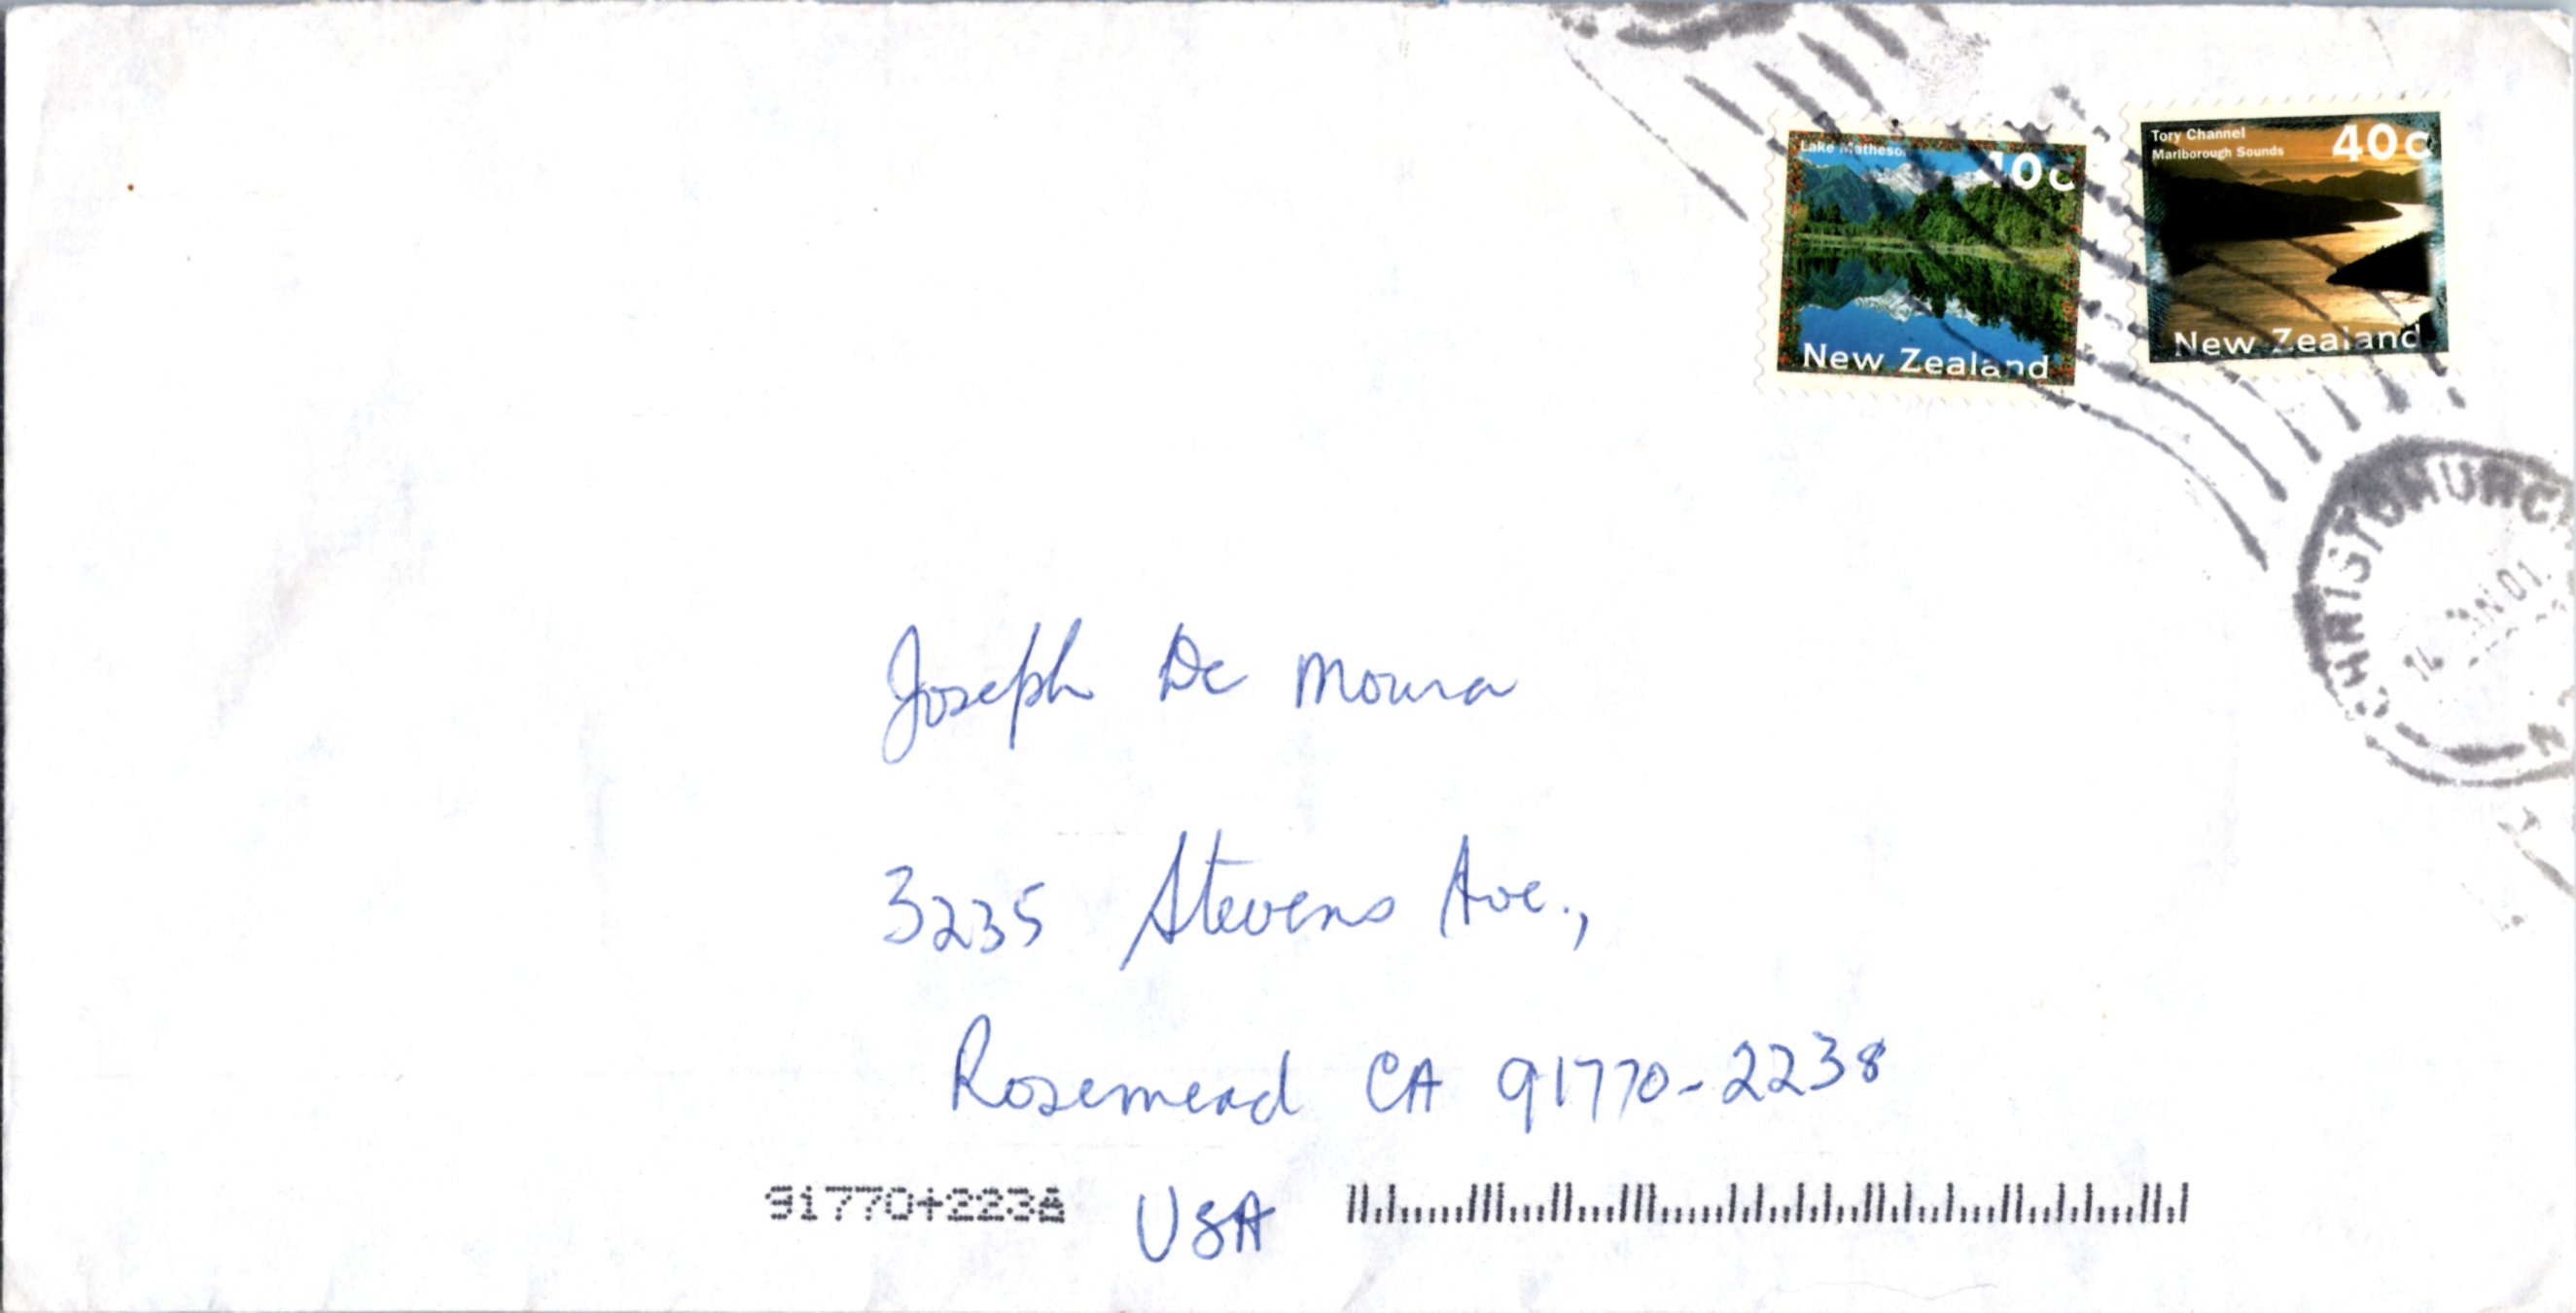 Lake Matheson
40c
New Zealand
Tory Channel
Marlborough Sounds
40c
New Zealand
CHRISTCHURCH
Joseph De Moura
3235 Stevens Ave.,
Rosemead CA 91770-2238
91770+2238
USA